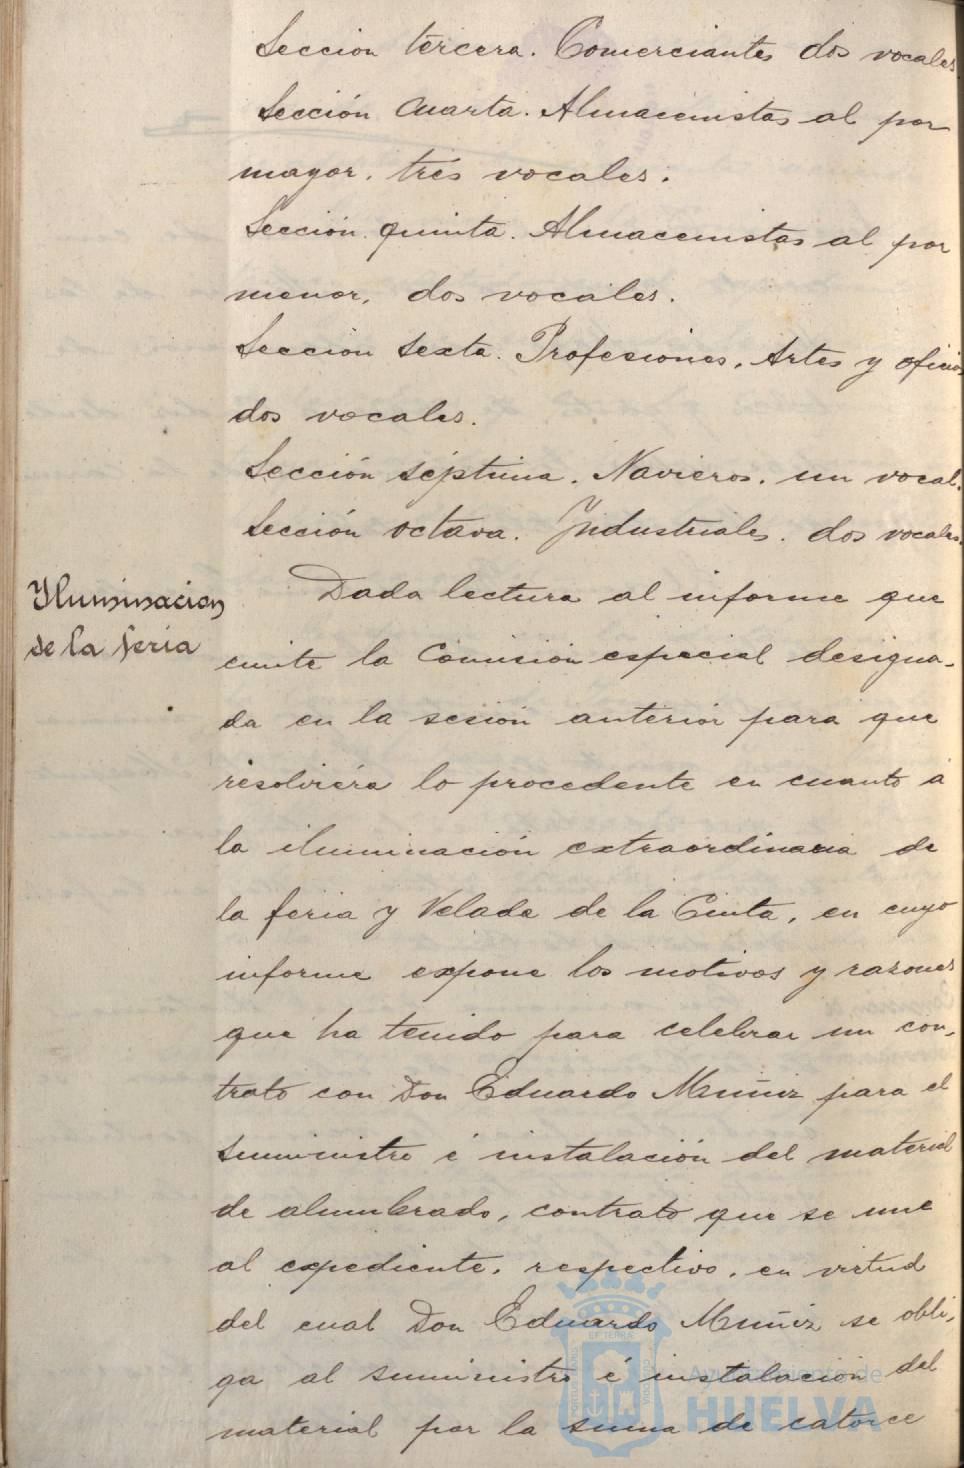 Sección tercera. Comerciantes dos vocales
Sección cuarta. Almacenistas al por
mayor. tres vocales.
Sección quinta. Almacenistas al por
menor, dos vocales.
Sección sexta. Profesiones, Artes y oficios
dos vocales.
Sección séptima. Navieros. un vocal.
Sección octava. Yndustriales. dos vocales.
Yluminacion
de la feria
Dada lectura al informe que
emite la Comisión especial designa-
da en la sesión anterior para que
resolviéra lo procedente en cuanto á
la iluminación extraordinaria de
la feria y Velada de la Cinta, en cuyo
informe expone los motivos y razones
que ha tenido para celebrar un con-
trato con Don Eduardo Muñiz para el
suministro é instalación del material
de alumbrado, contrato que se une
al expediente, respectivo, en virtud
del cual Don Eduardo Muñiz se obli-
ga al suministro é instalación del
material por la suma de catorce
Ayuntamiento de
HUELVA